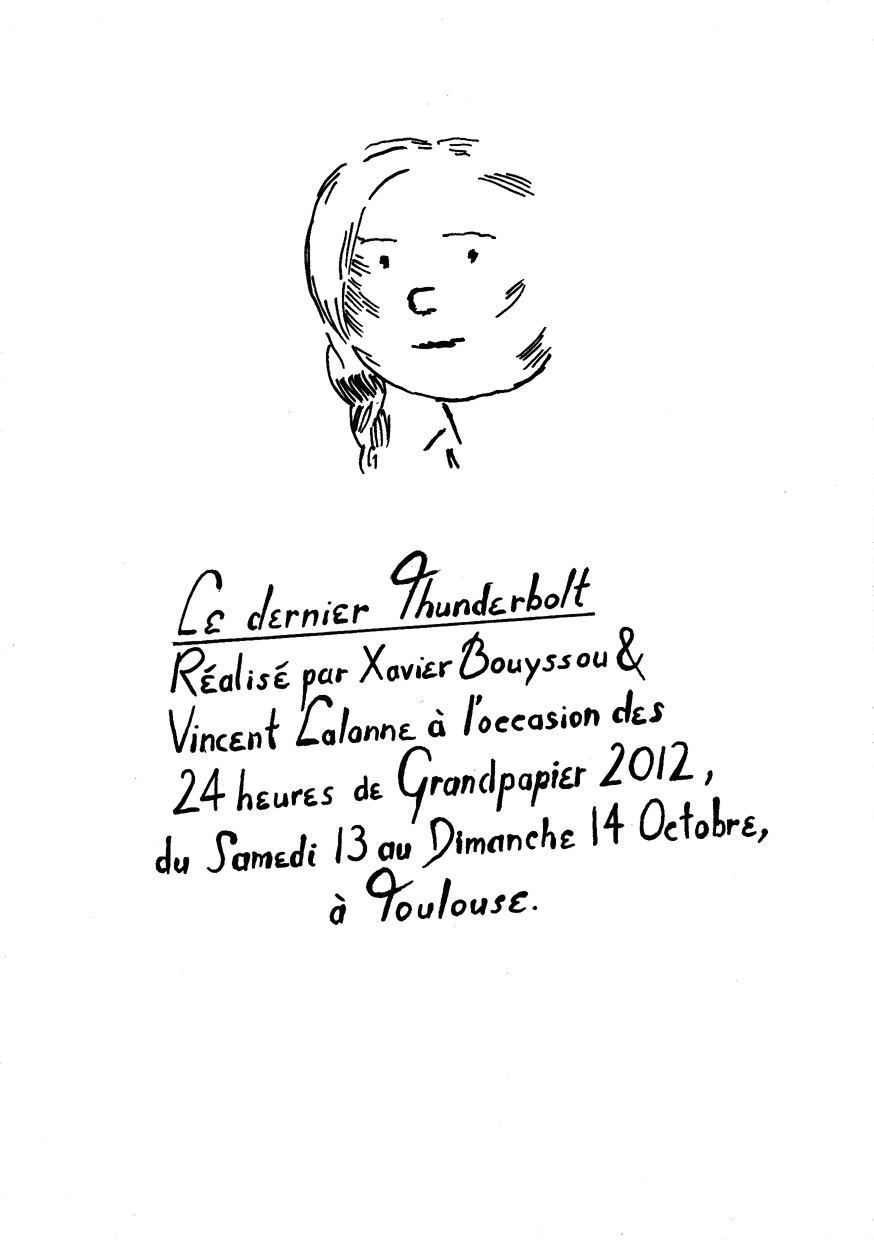 Le dernier Thunderbolt
Réalisé par Xavier Bouyssou &
Vincent Lalanne à l'occasion des
24 heures de Grandpapier 2012,
du Samedi 13 au Dimanche 14 Octobre,
à Toulouse.